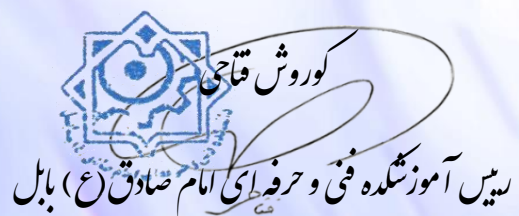 کوروش فتاحی
رییس آموزشکده فنی و حرفه ای امام صادق (ع) بابل